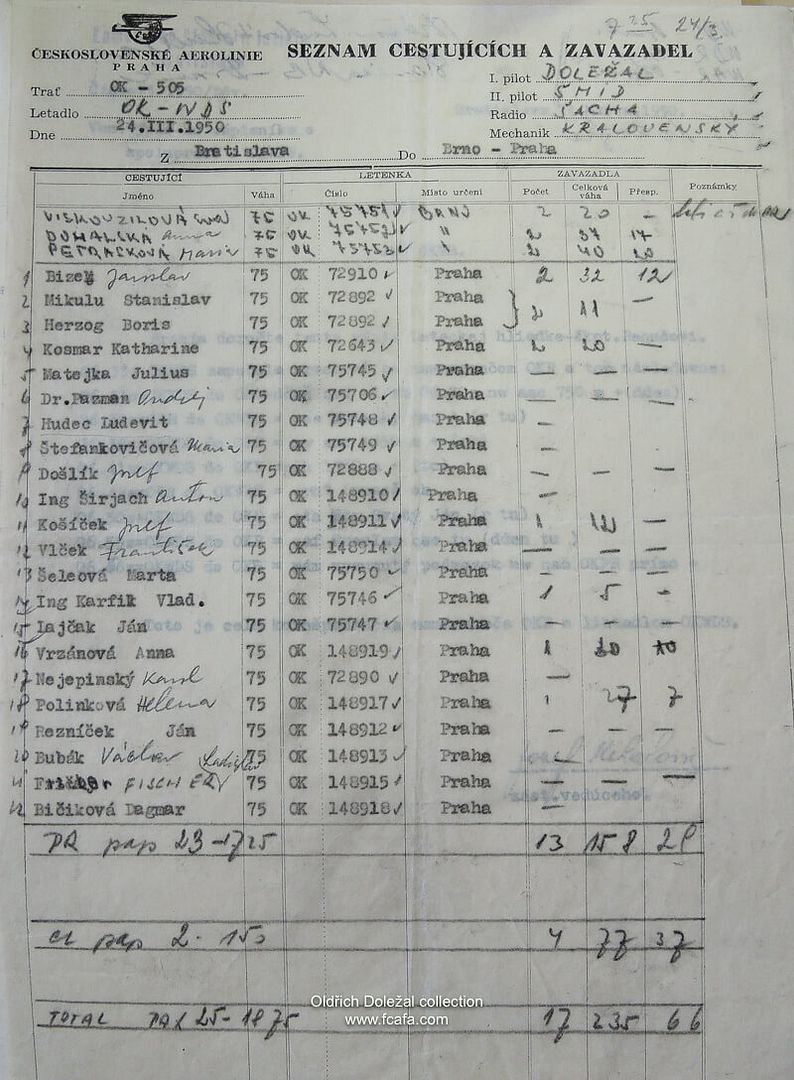 7 25 24/3
ČESKOSLOVENSKÉ AEROLINIE
PRAHA
SEZNAM CESTUJÍCÍCH A ZAVAZADEL
Trať OK - 505
Letadlo OK-WDS
Dne 24.III.1950
I. pilot DOLEŽAL
II. pilot ŠMID
Radio ŠACHA
Mechanik KRALOVENSKÝ
Z Bratislava Do Brno - Praha
CESTUJÍCÍ LETENKA ZAVAZADLA
Jméno Váha Číslo Místo určení Počet Celková váha Přesp. Poznámky
75 OK 75751 BRNO 2 20 -
DOMALSKÁ Anna 75 OK 75752 " 2 37 17
Maria 75 OK 75753 " 2 40 20
1 Bizek Jaroslav 75 OK 72910 Praha 2 32 12
2 Mikulu Stanislav 75 OK 72892 Praha 2 11 —
3 Herzog Boris 75 OK 72892 Praha
4 Kosmar Katharine 75 OK 72643 Praha 2 20 —
5 Matejka Julius 75 OK 75745 Praha — — —
6 Dr.Pazman Ondrej 75 OK 75706 Praha — — —
7 Hudec Ludevit 75 OK 75748 Praha —
8 Štefankovičová Maria 75 OK 75749 Praha —
9 Došlík Josef 75 OK 72888 Praha — — —
10 Ing Širjach Anton 75 OK 148910 Praha —
11 Košíček Josef 75 OK 148911 Praha 1 12 —
12 Vlček František 75 OK 148914 Praha — — —
13 Šeleová Marta 75 OK 75750 Praha — — —
14 Ing Karfik Vlad. 75 OK 75746 Praha 1 5 -
15 Lajčak Ján 75 OK 75747 Praha — — —
16 Vrzánová Anna 75 OK 148919 Praha 1 20 10
17 Nejepinský Karel 75 OK 72890 Praha —
18 Polinková Helena 75 OK 148917 Praha 1 27 7
19 Rezníček Ján 75 OK 148912 Praha — — —
20 Bubák Václav 75 OK 148913 Praha —
Ladislav
FISCHER 75 OK 148915 Praha — — —
22 Bičiková Dagmar 75 OK 148918 Praha —
zást.vedúceho.
PR pap 23-1725 13 158 29
pap 2- 150 4 77 37
TOTAL PAX 25-1875 17 235 66
Oldřich Doležal collection
www.fcafa.com